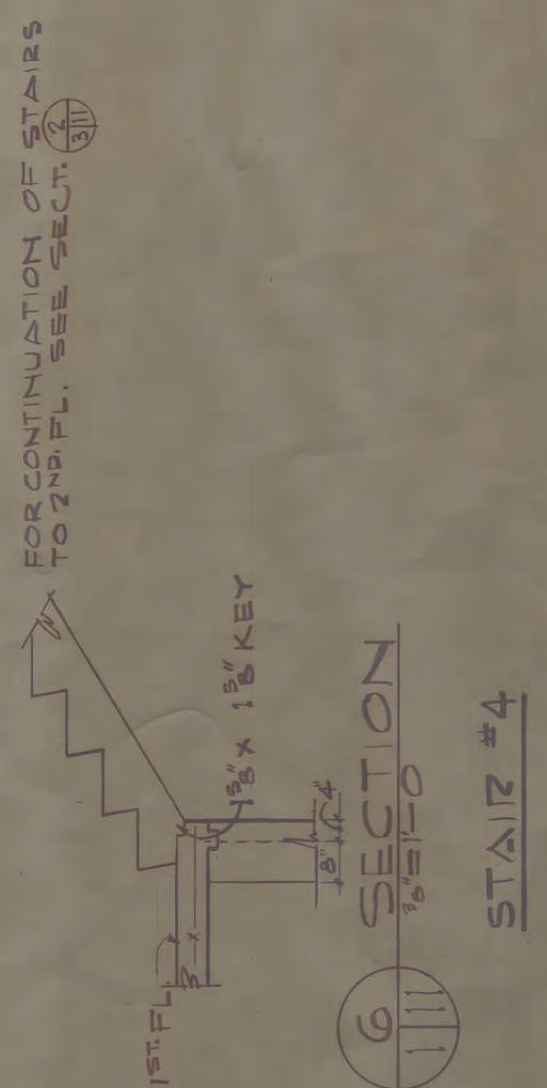 FOR CONTINUATION OF STAIRS
TO 2ND. FL. SEE SECT. 2
3 11
1ST. FL.
1 5/8" x 1 5/8" KEY
8" 4"
SECTION
3/8"=1'-0
1 11
STAIR #4